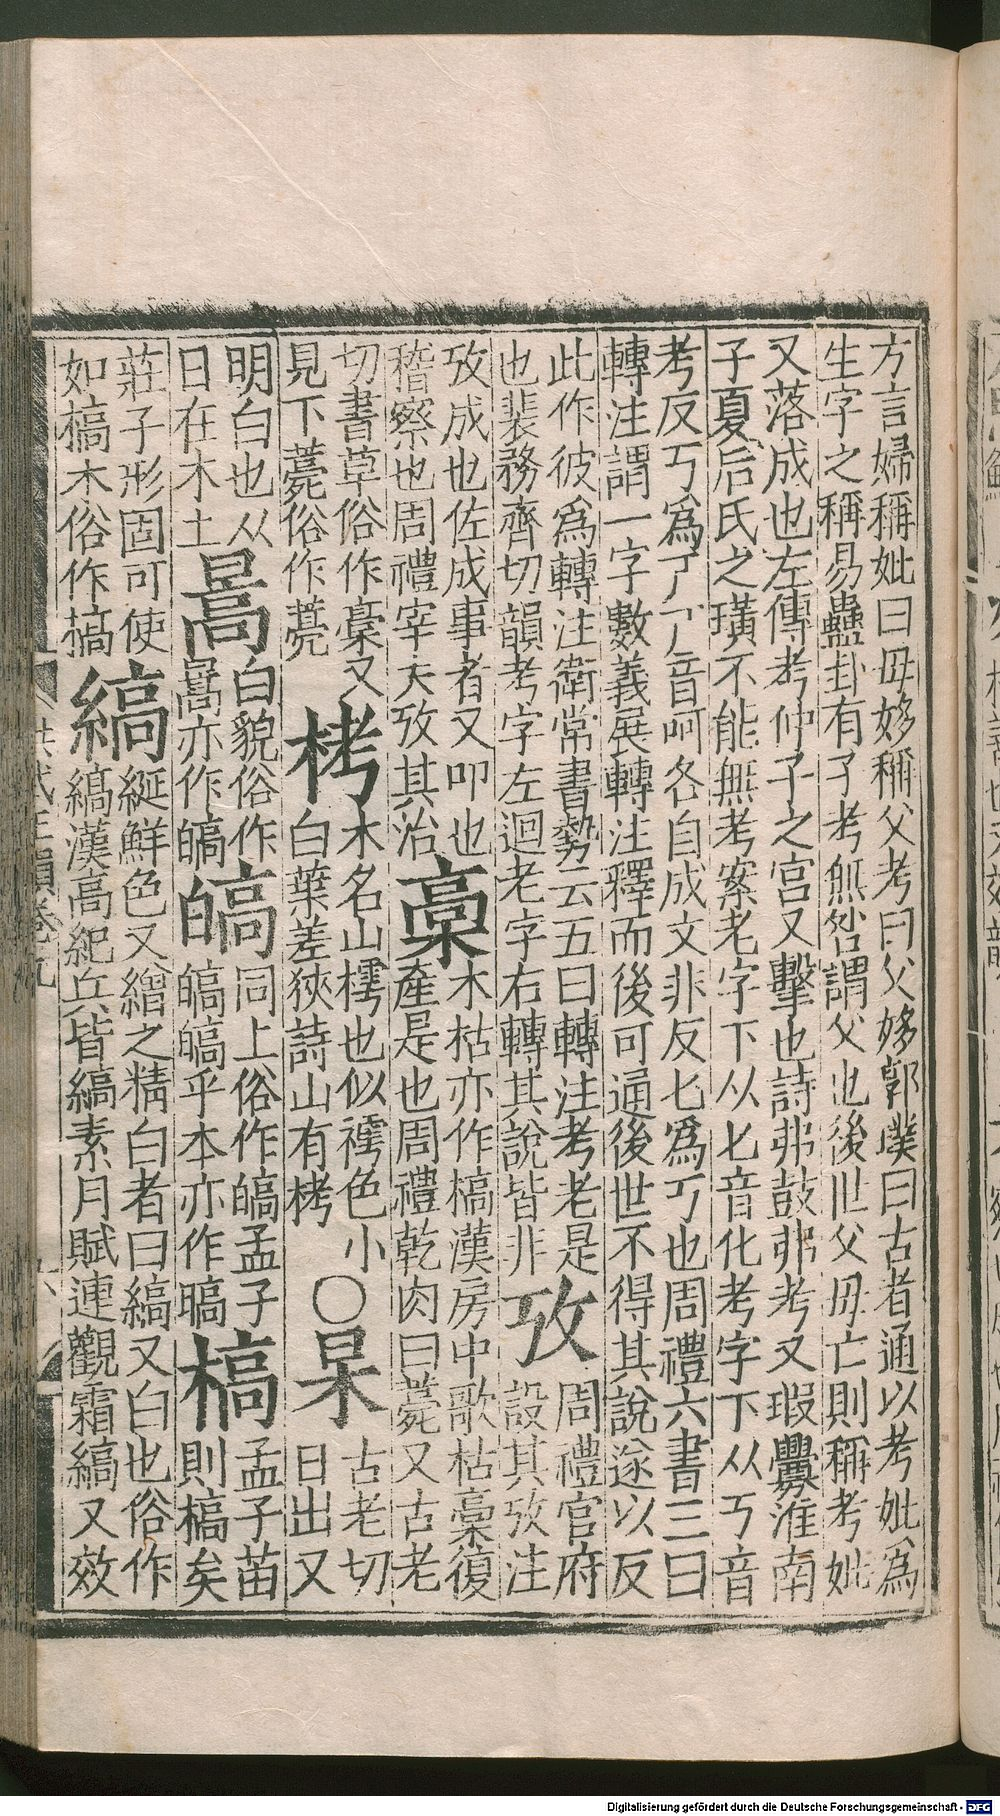 方言婦稱妣曰毋姼稱父考曰父姼郭璞曰古者通以考妣為
生字之稱易蠱卦有子考無咎謂父也後世父毋亡則稱考妣
又落成也左傳考仲子之宮又擊也詩弗鼓弗考又瑕釁淮南
子夏后氏之璜不能無考案老字下从匕音化考字下从丂音
考反丂為了音呵各自成文非反匕為丂也周禮六書三曰
轉注謂一字數義展轉注釋而後可通後世不得其說遂以反
此作彼為轉注衛常書勢云五曰轉注考老是
也裴務齊切韻考字左迴老字右轉其說皆非
攷
周禮官府
設其攷注
攷成也佐成事者又叩也
稽察也周禮宰夫攷其治
槀
木枯亦作槁漢房中歌枯槀復
產是也周禮乾肉曰薧又古老
切書草俗作稾又
見下薧俗作薨
栲
木名山樗也似樗色小
白葉差狹詩山有栲
〇杲
古老切
日出又
明白也从
日在木上
暠
白貌俗作
暠亦作皜
皜
同上俗作皜孟子
皜皜乎本亦作暠
槁
孟子苗
則槁矣
莊子形固可使
如槁木俗作槁
縞
綖鮮色又繒之精白者曰縞又白也俗作
縞漢高紀兵皆縞素月賦連觀霜縞又效
洪武正韻卷九
六
Digitalisierung gefördert durch die Deutsche Forschungsgemeinschaft - DFG